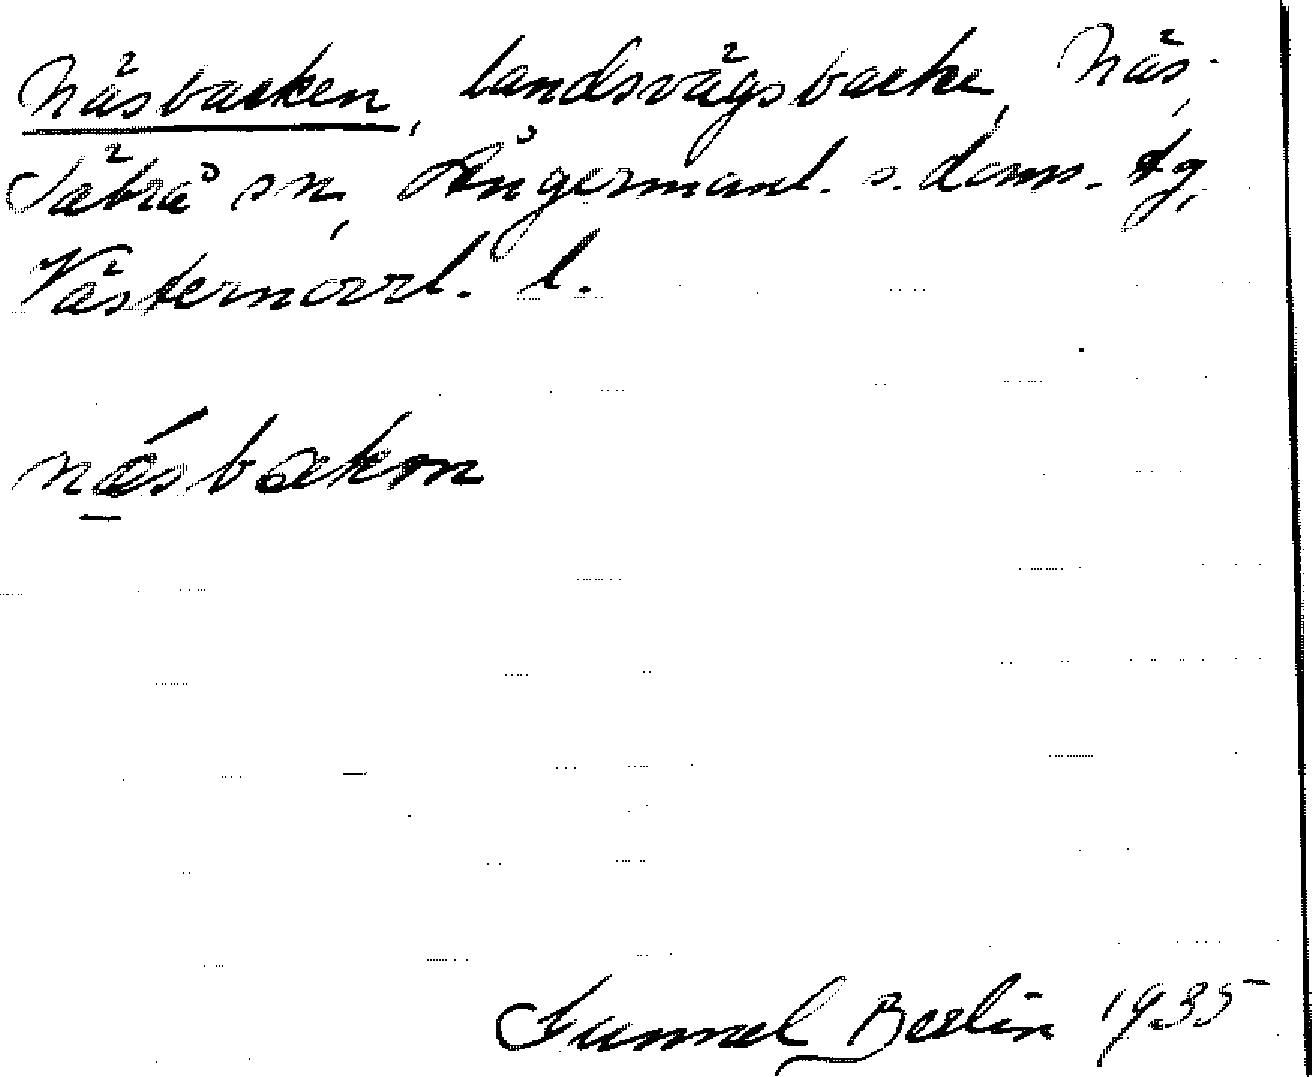 Näsbacken, landsvägsbacke, Näs,
Säbrå sn, Ångermanl. s. doms. tg,
Västernorrl. l.
násbakɷn
Gunnel Berlin 1935